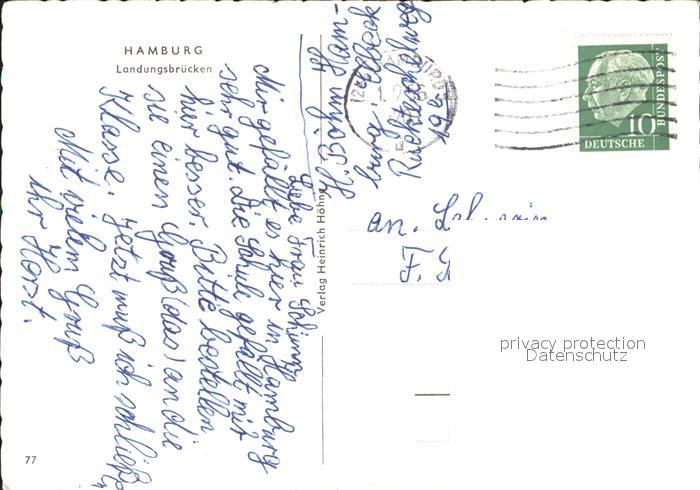 HAMBURG
Landungsbrücken
Liebe Frau
Mir gefällt es hier in Hamburg
sehr gut. Die Schule gefällt mir
hier besser. Bitte bestellen
sie einen Gruß (das) an die
Klasse. Jetzt muß ich schließ
Mit vielem Gruß
Ihr Horst.
77
Verlag Heinrich Höhne
H. Bohn Ham-
burg.
19a
HAMBURG
10
DEUTSCHE
BUNDESPOST
an.
F.
privacy protection
Datenschutz